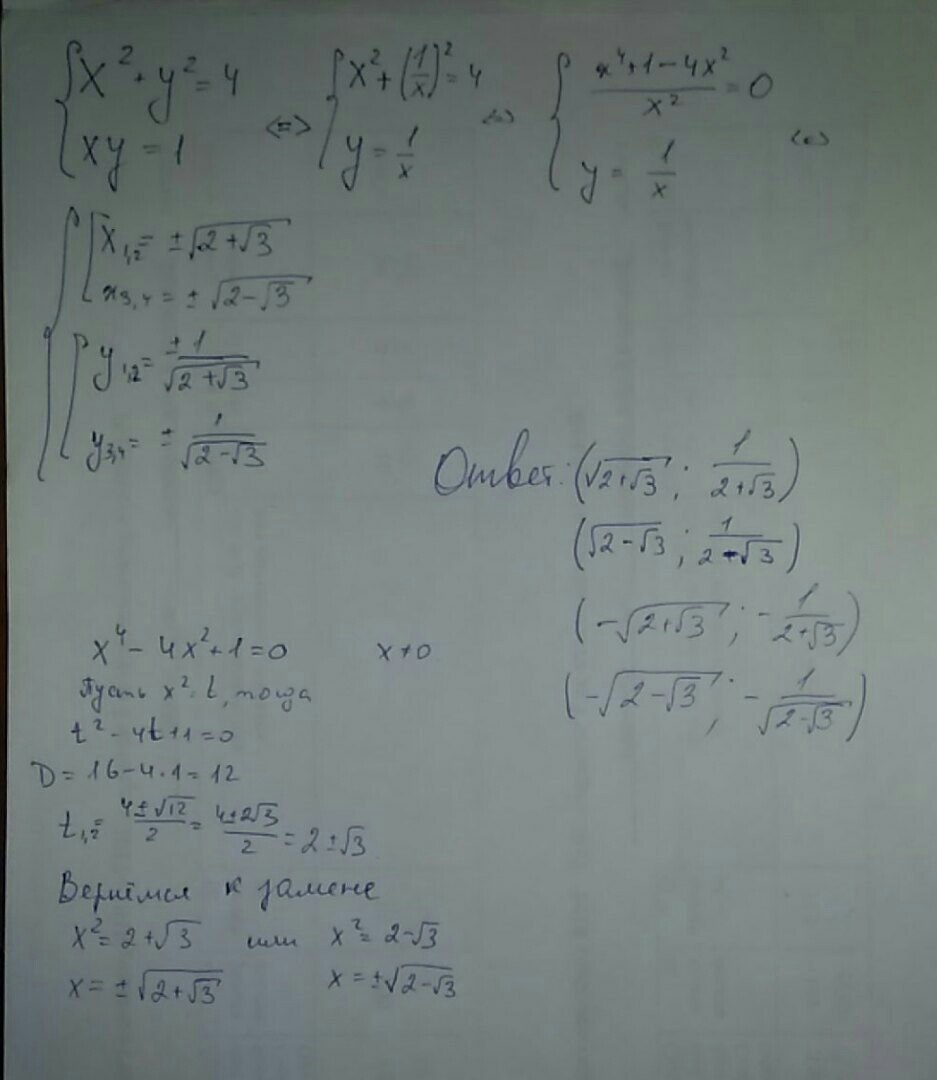 {x² + y² = 4 ⇔ {x² + (1/x)² = 4 ⇔ {(x⁴+1-4x²)/x² = 0 ⇔
{xy = 1 {y = 1/x {y = 1/x
x₁,₂ = ±√(2+√3)
x₃,₄ = ±√(2-√3)
y₁,₂ = ±1/√(2+√3)
y₃,₄ = ±1/√(2-√3)
Ответ: (√(2+√3) ; 1/(2+√3))
(√(2-√3) ; 1/(2-√3))
(-√(2+√3) ; -1/(2+√3))
(-√(2-√3) ; -1/√(2-√3))
x⁴ - 4x² + 1 = 0 x ≠ 0
Пусть x² = t, тогда
t² - 4t + 1 = 0
D = 16 - 4·1 = 12
t₁,₂ = (4±√12)/2 = (4±2√3)/2 = 2±√3
Вернёмся к замене
x² = 2+√3 или x² = 2-√3
x = ±√(2+√3) x = ±√(2-√3)